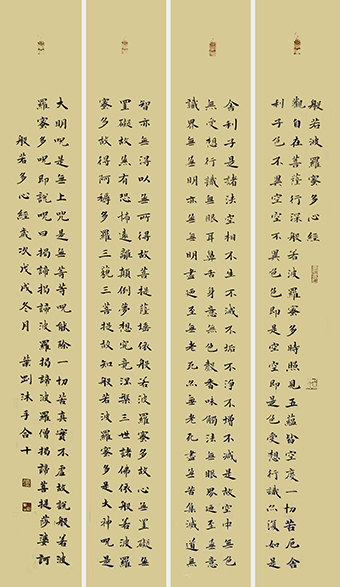 般若波羅蜜多心經
觀自在菩薩行深般若波羅蜜多時照見五蘊皆空度一切苦厄舍
利子色不異空空不異色色即是空空即是色受想行識亦復如是
舍利子是諸法空相不生不滅不垢不淨不增不減是故空中無色
無受想行識無眼耳鼻舌身意無色聲香味觸法無眼界乃至無意
識界無無明亦無無明盡乃至無老死亦無老死盡無苦集滅道無
智亦無得以無所得故菩提薩埵依般若波羅蜜多故心無罣礙無
罣礙故無有恐怖遠離顛倒夢想究竟涅槃三世諸佛依般若波羅
蜜多故得阿耨多羅三藐三菩提故知般若波羅蜜多是大神呪是
大明呪是無上呪是無等等呪能除一切苦真實不虛故說般若波
羅蜜多呪即說呪曰揭諦揭諦波羅揭諦波羅僧揭諦菩提莎婆訶
般若多心經歲次戊戌冬月 葉劍沐手合十